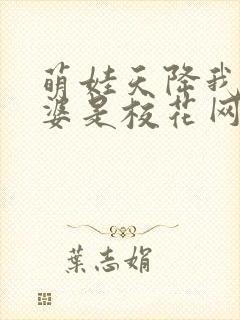 萌娃天降我
婆是校花网
葉志娟